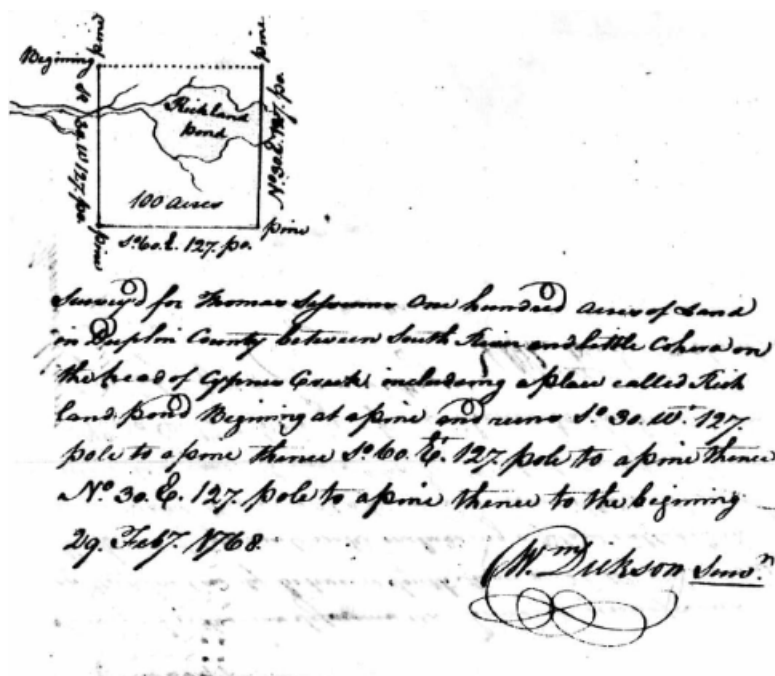 pine
pine
Begining
So 30 W 127. po.
Richland
pond
No 30 E. 127. po.
100 acres
pine
pine
So 60. E. 127. po.
Survey'd for Thomas One hundred acres of Land
in Duplin County between South River and little Cohera on
the head of Cypress Creek including a place called Rich
land pond Begining at a pine and runs So 30. Wt. 127.
pole to a pine thence So 60. Et. 127. pole to a pine thence
No 30. E. 127. pole to a pine thence to the begining
29. Feby. 1768.
Wm Dickson Survr.